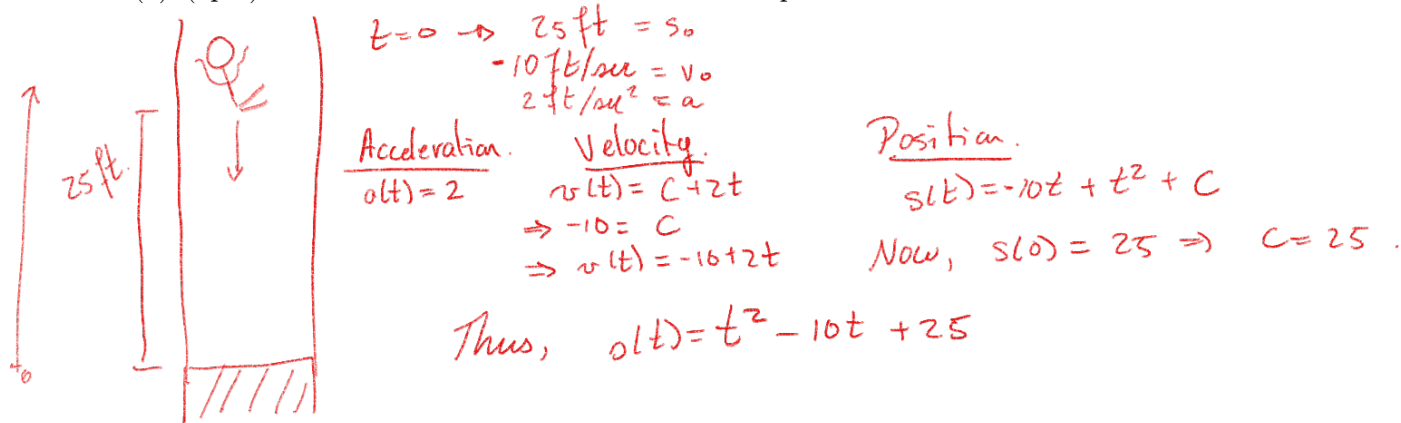 t=0 → 25 ft = s₀
-10 ft/sec = v₀
2 ft/sec² = a
25 ft.
Acceleration.
a(t) = 2
Velocity.
v(t) = C + 2t
⇒ -10 = C
⇒ v(t) = -10+2t
Position.
s(t) = -10t + t² + C
Now, s(0) = 25 ⇒ C = 25.
0
Thus, s(t) = t² - 10t + 25